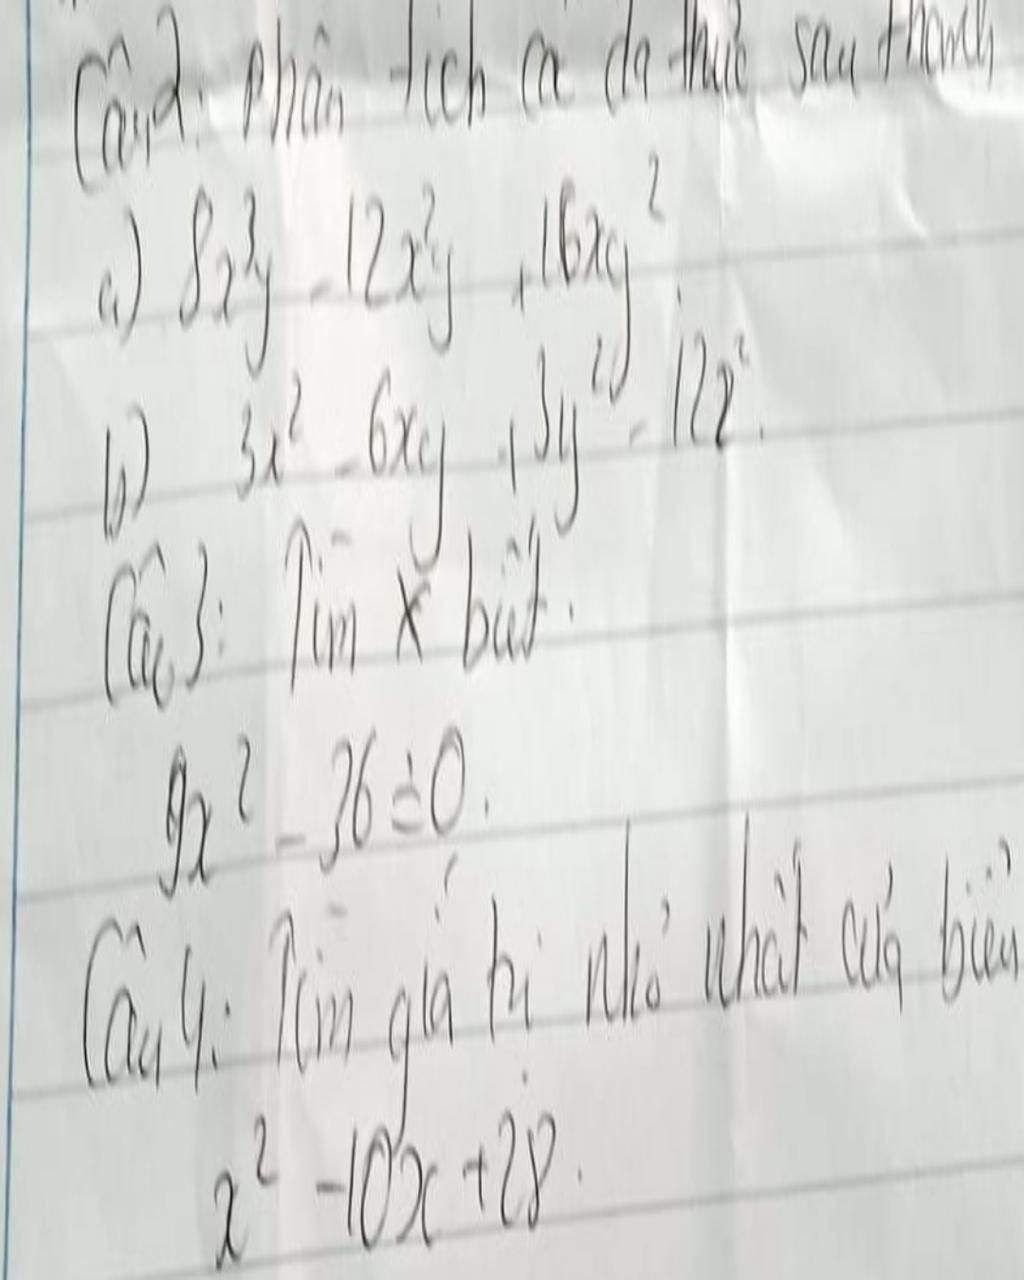 Câu 2: Phân tích cá đa thức sau thành
a) 8x³y - 12x²y + 16xy².
b) 3x² - 6xy + 3y² - 12z².
Câu 3: Tìm x biết.
9x² - 36 = 0.
Câu 4: Tìm giá trị nhỏ nhất của biểu
x² - 10x + 28.